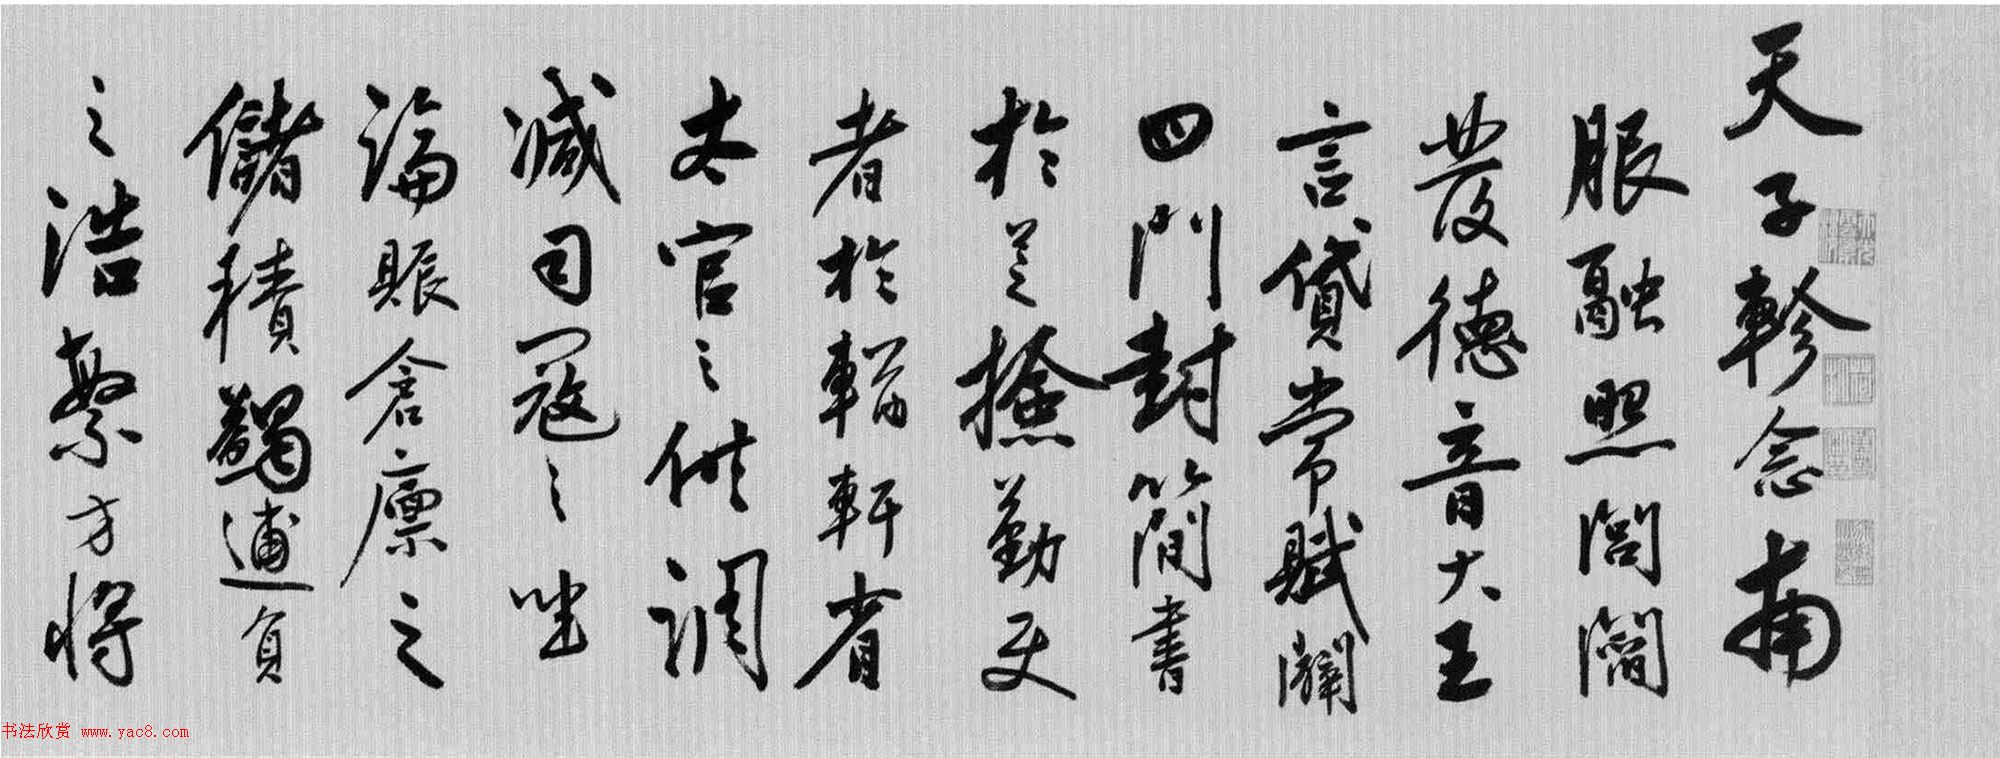 天子軫念南
服融照闾簷
發德音大王
言貸常賦闢
四門封簡書
於芝撿勤吏
者於輶軒省
太官之供調
減司寇之
論賑倉廪之
儲積蠲逋負
之浩繁方將
书法欣赏 www.yac8.com